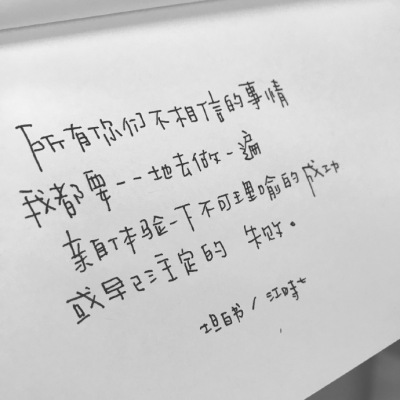 所有你们不相信的事情
我都要一一地去做一遍
亲自体验一下不可理喻的成功
或早已注定的 失败。
坦白书 / 江时